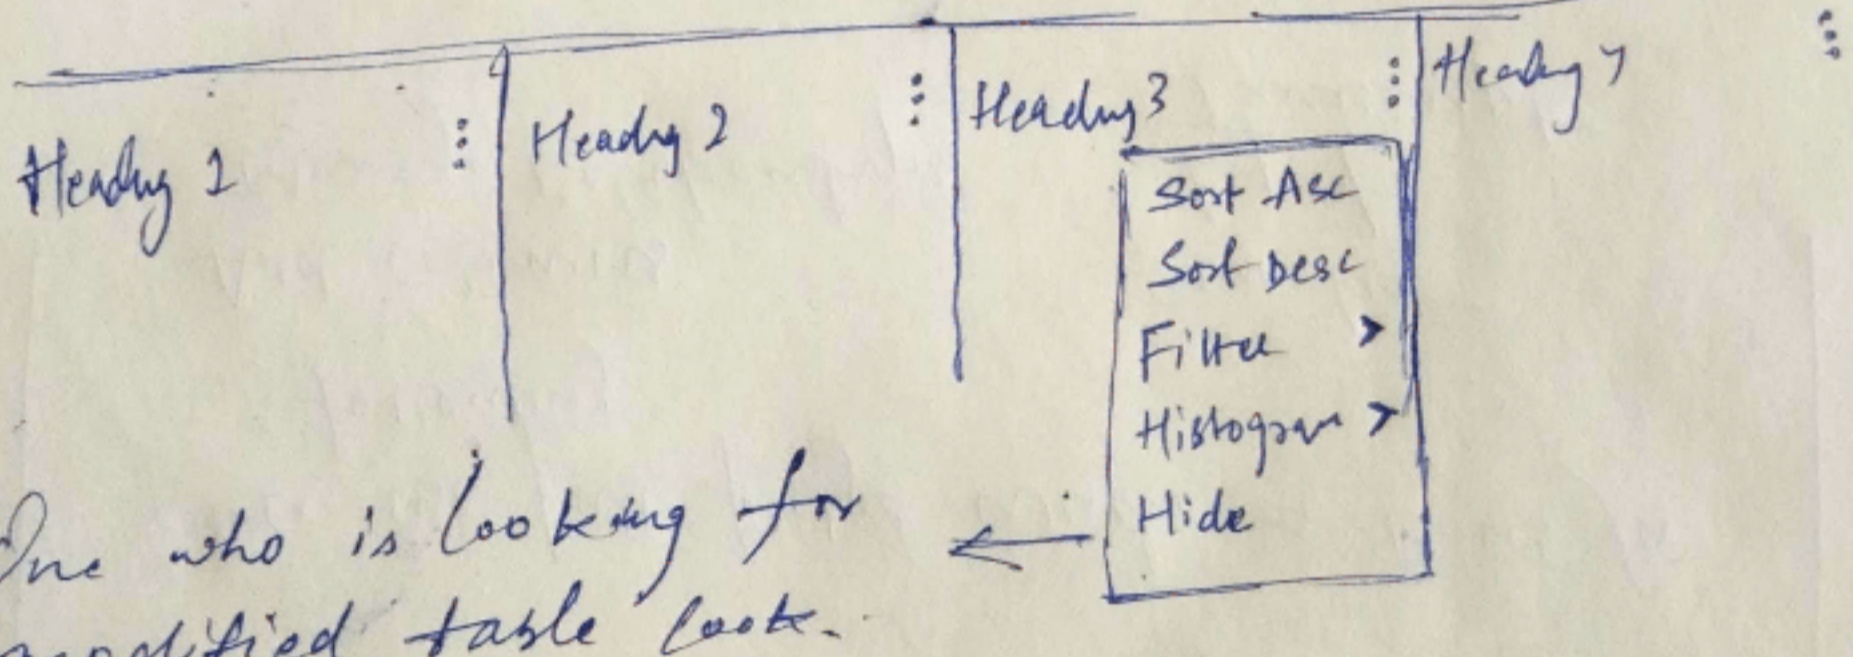 Heading 1
Heading 2
Heading 3
Heading 4
Sort Asc
Sort Desc
Filter >
Histogram >
Hide
One who is looking for
modified table look.